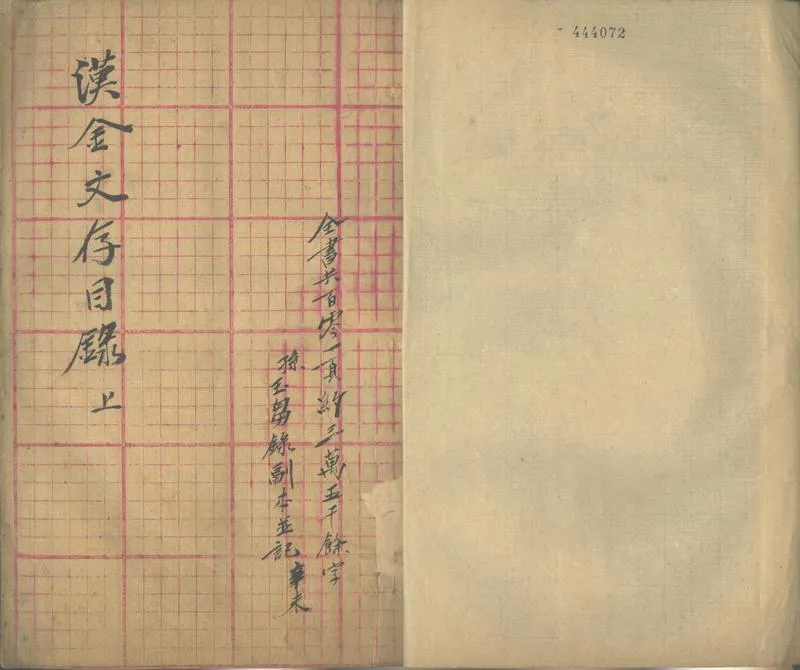 444072
全書共百零一頁約三萬五千餘字
孫玉𭥍錄副本並記 辛未
漢金文存目錄 上